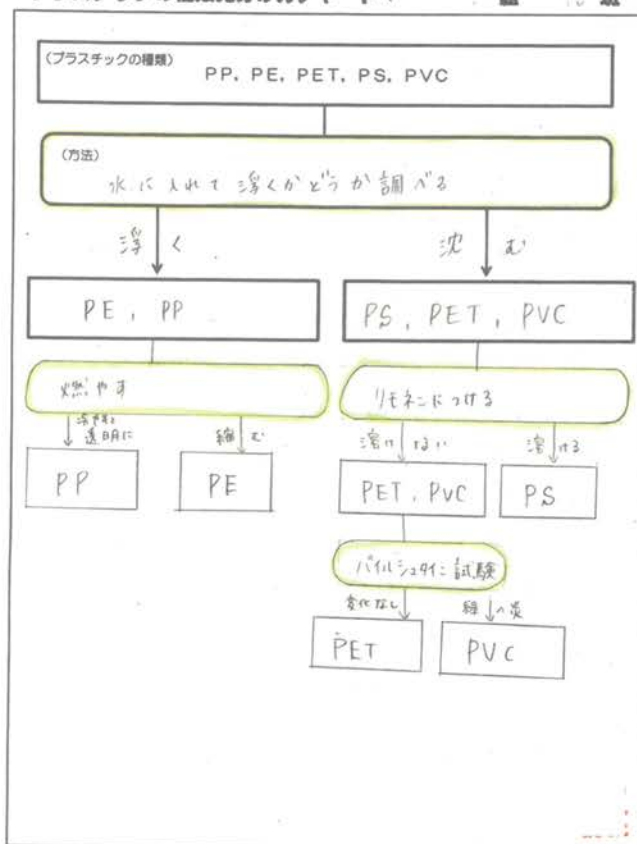 (プラスチックの種類)
PP, PE, PET, PS, PVC
(方法)
水に入れて浮くかどうか調べる
浮く
沈む
PE, PP
PS, PET, PVC
燃やす
リモネンにつける
透明に
縮む
溶けない
溶ける
PP
PE
PET, PVC
PS
バイルシュタイン試験
変化なし
緑の炎
PET
PVC